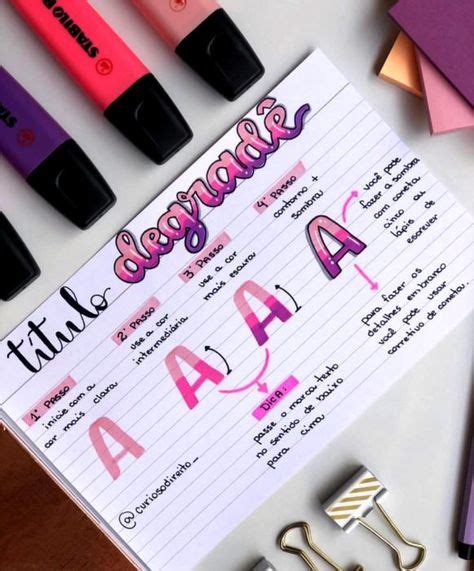 STABILO BOSS
STABILO
título degradê
1º PASSO
inicie com a
cor mais clara
A
2º PASSO
use a cor
intermediária
A
3º PASSO
use a cor
mais escura
A
4º PASSO
contorno +
sombra
A
você pode
fazer a sombra
com caneta
cinza ou
lápis de
escrever
para fazer os
detalhes em branco
você pode usar
corretivo de caneta.
DICA:
passe o marca texto
no sentido de baixo
para cima
@curiosodireito_